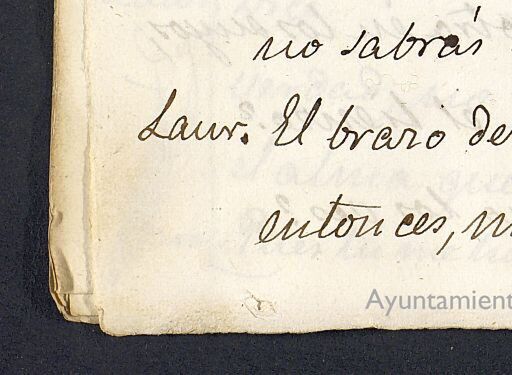 no sabrás
Laur. El brazo de
entonces, m
Ayuntamient